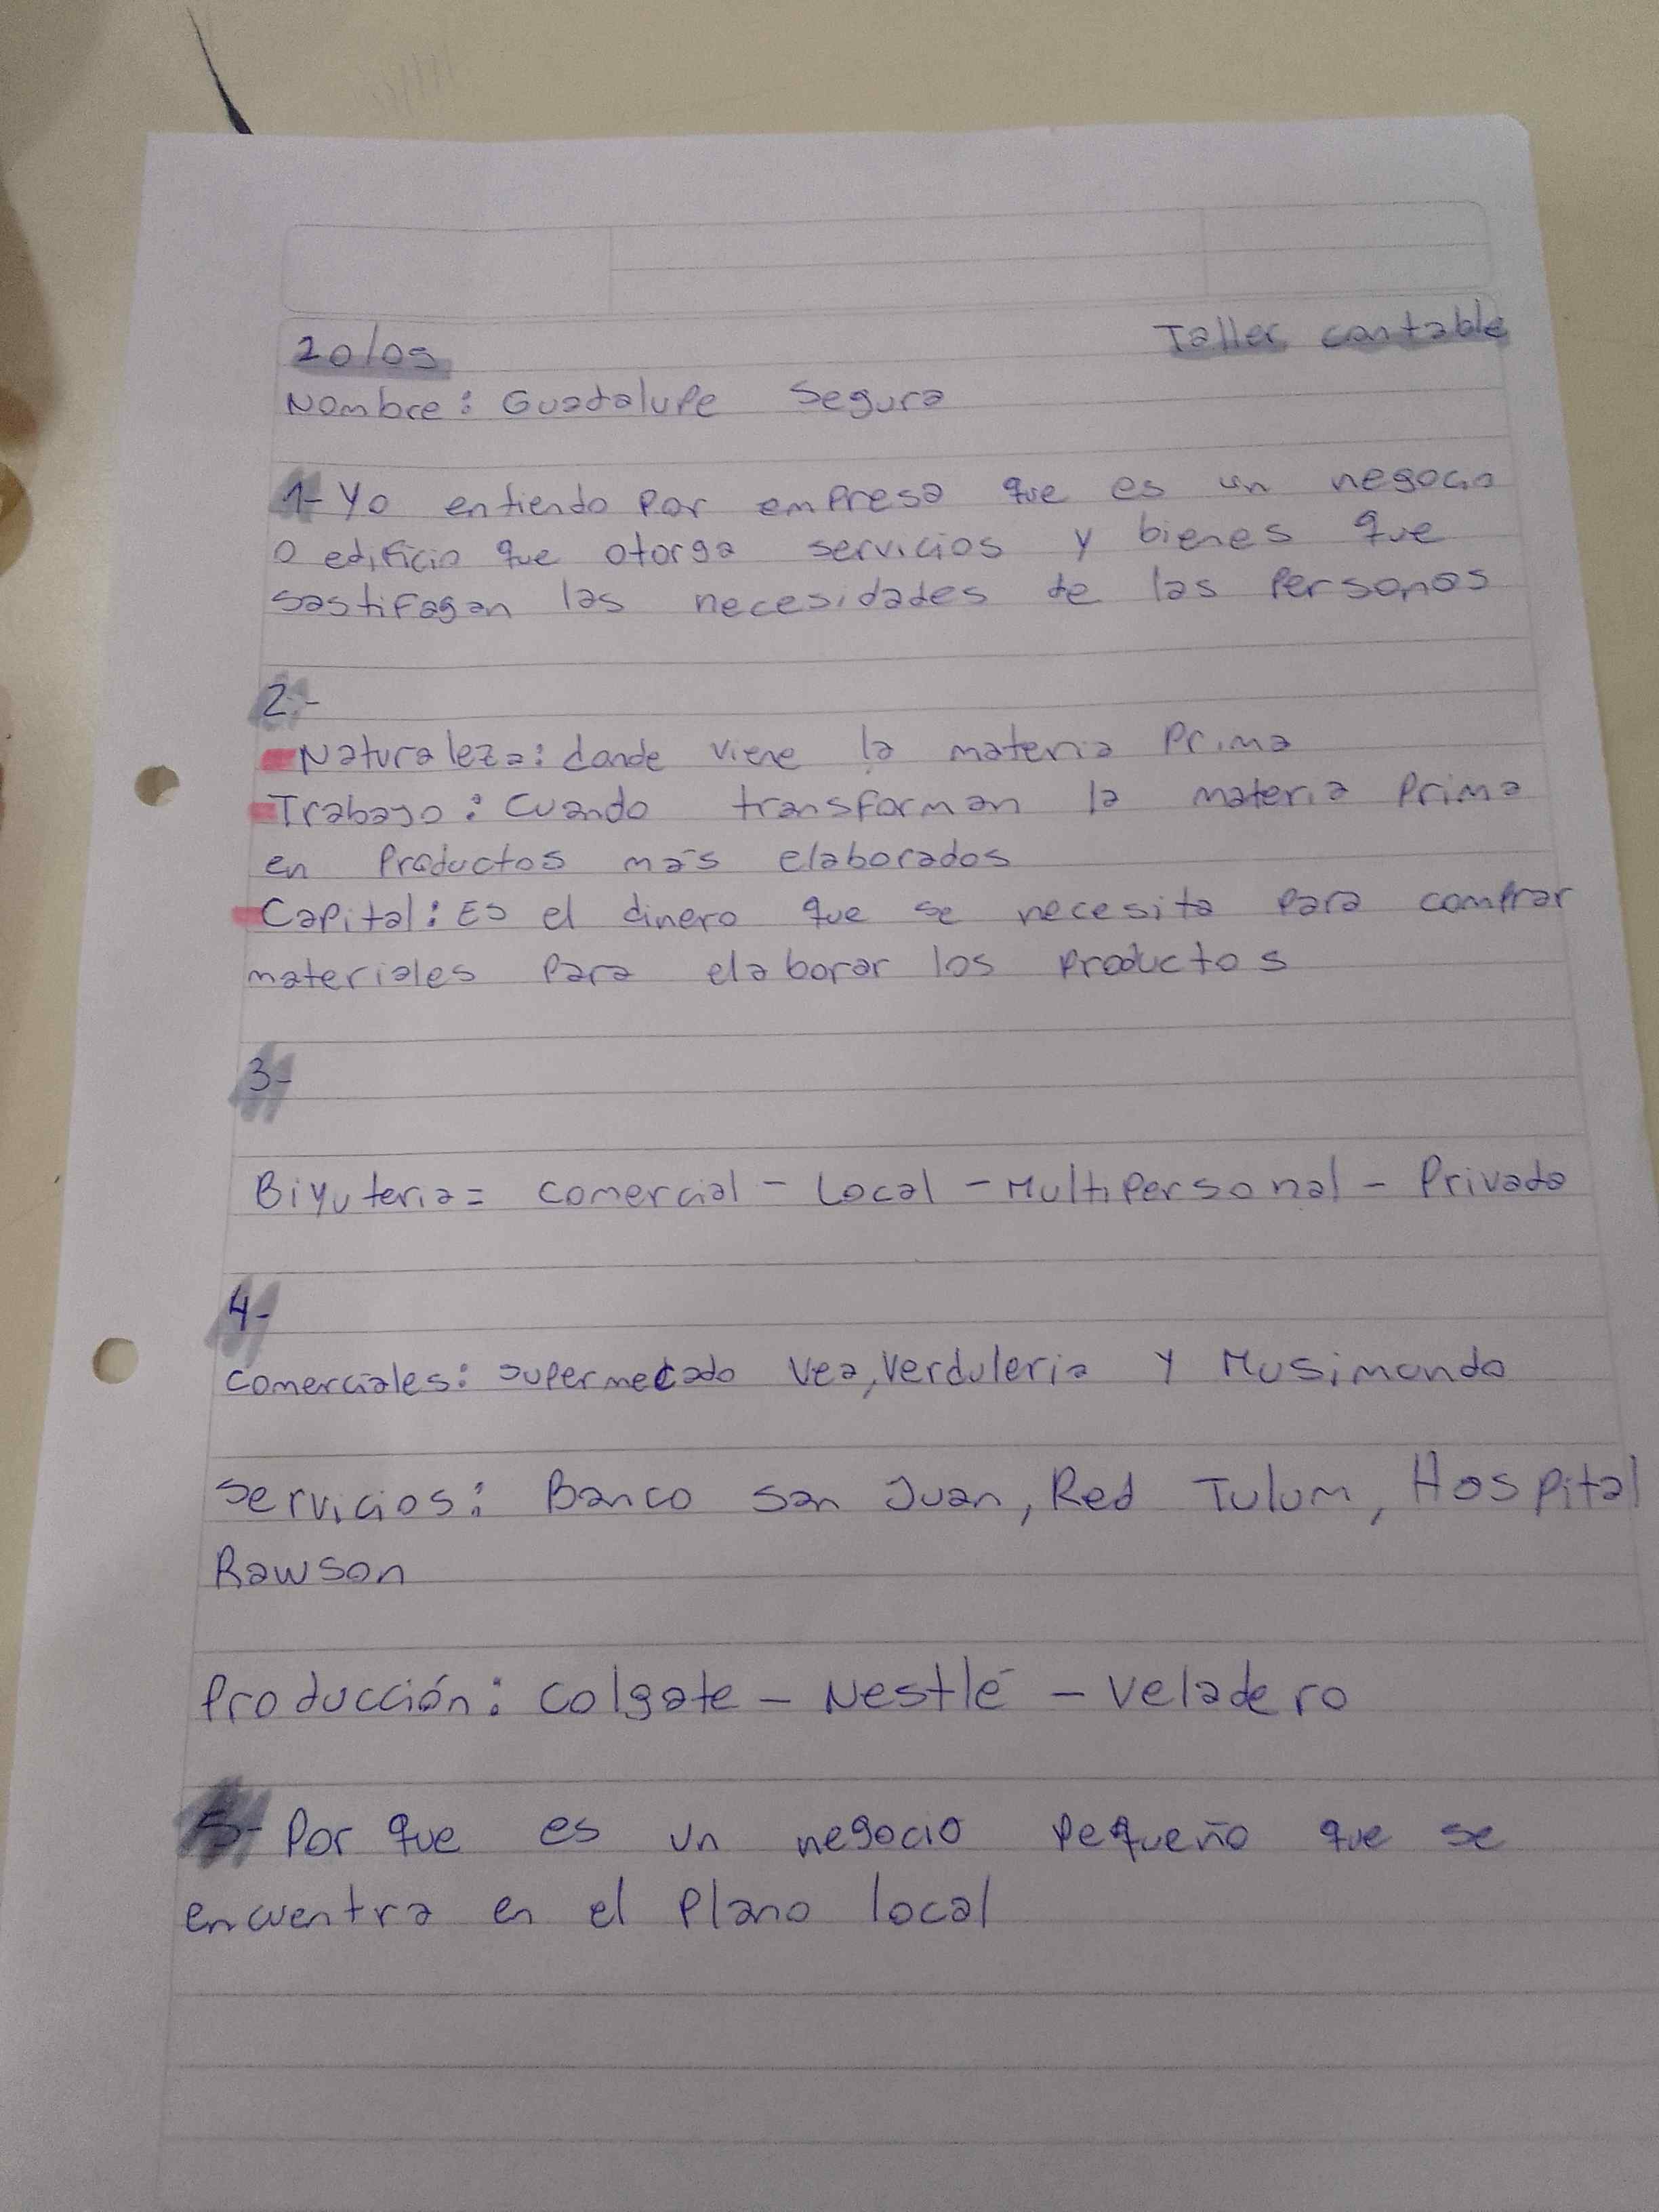 20/05
Taller contable
Nombre: Guadalupe Segura
1- Yo entiendo por empresa que es un negocio
o edificio que otorga servicios y bienes que
sastifagan las necesidades de las personas
2-
- Naturaleza: donde viene la materia prima
- Trabajo: Cuando transforman la materia prima
en productos más elaborados
- Capital: Es el dinero que se necesita para comprar
materiales para elaborar los productos
3-
Biyuteria= comercial - Local - Multipersonal - Privada
4-
comerciales: supermecado Vea, Verduleria y Musimundo
servicios: Banco San Juan, Red Tulum, Hospital
Rawson
Producción: Colgate - Nestlé - Veladero
5- Por que es un negocio pequeño que se
encuentra en el plano local